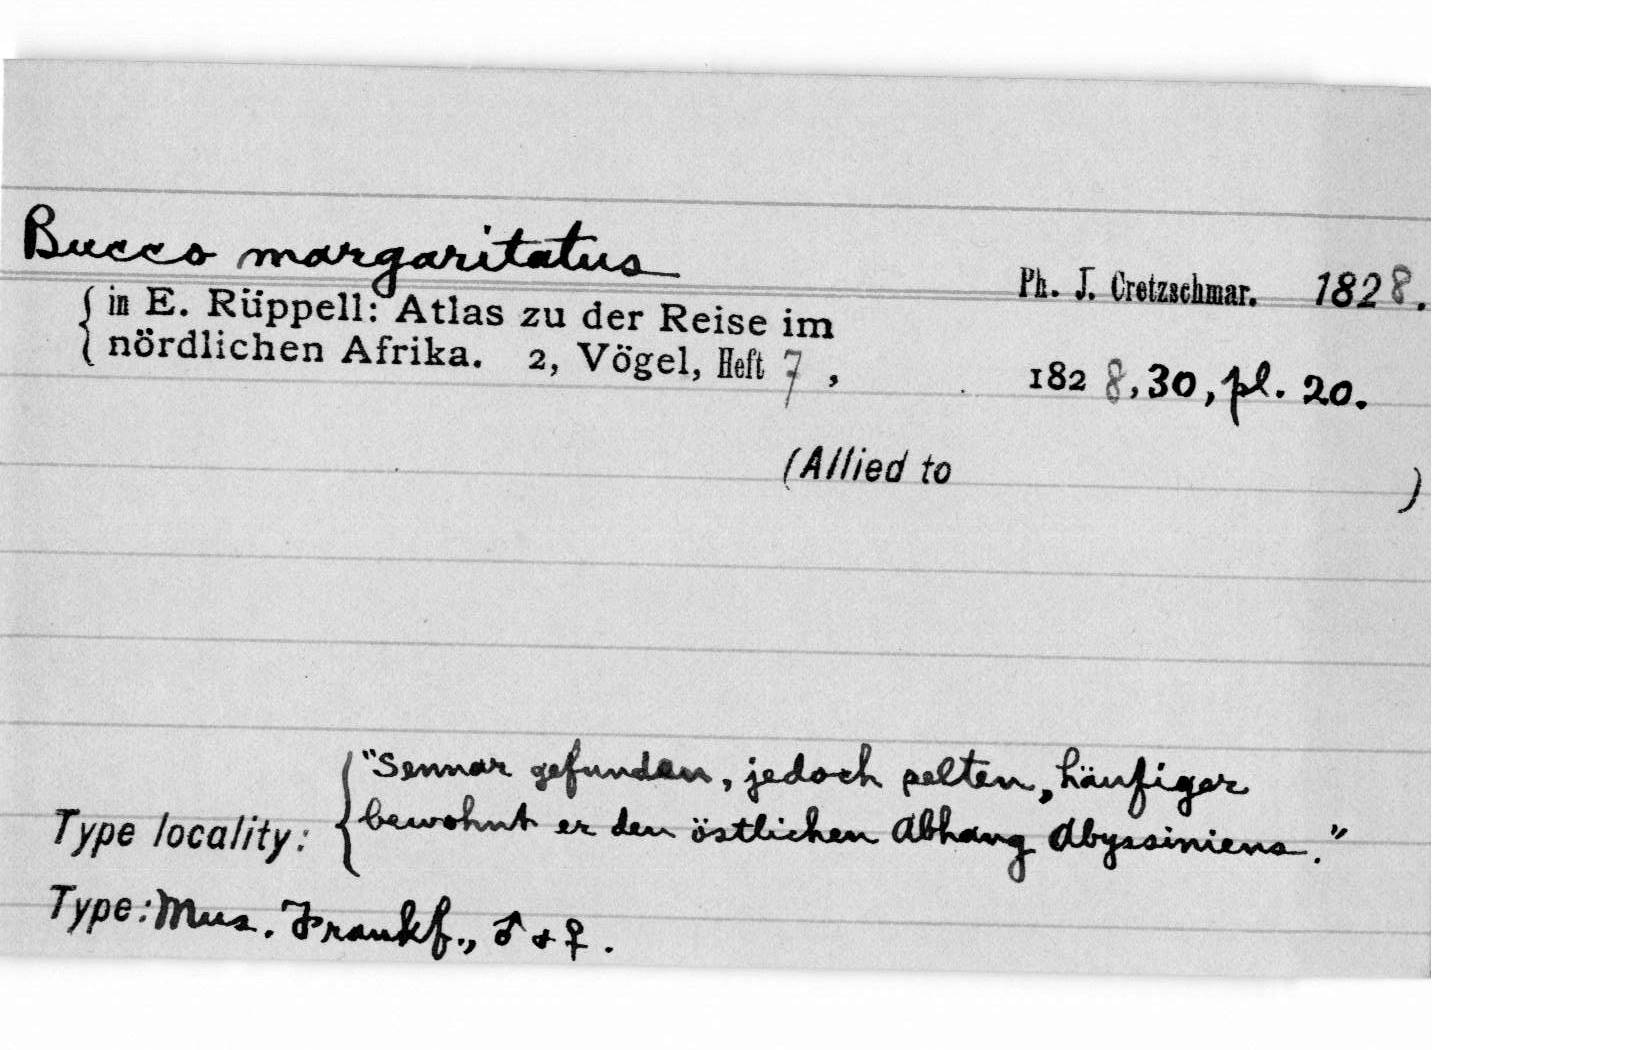 Bucco margaritatus
Ph. J. Cretzschmar. 1828.
in E. Rüppell: Atlas zu der Reise im
nördlichen Afrika. 2, Vögel, Heft 7, 1828, 30, pl. 20.
(Allied to )
"Sennar gefunden, jedoch selten, häufiger
Type locality: bewohnt er den östlichen Abhang Abyssiniens."
Type: Mus. Frankf., ♂ + ♀.